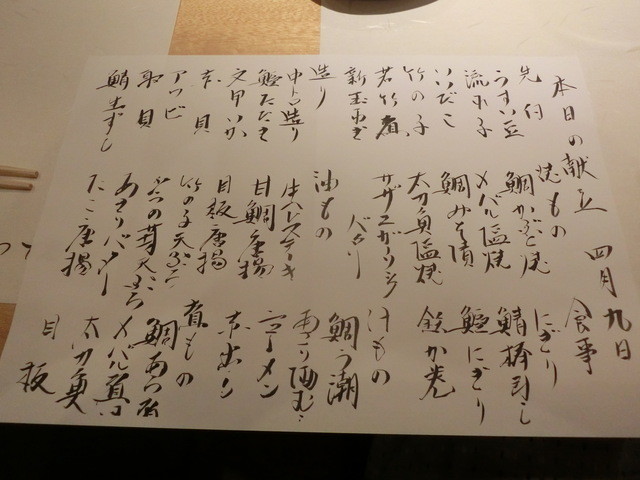 本日の献立 四月九日
先付
うすい豆
流し子
いいだこ
竹の子
若竹煮
新玉ねぎ
造り
中トロ造り
鰹たたき
文甲いか
赤貝
アワビ
平貝
鯖生ずし
焼もの
鯛かぶと焼
メバル塩焼
鯛みそ漬
太刀魚塩焼
サザエガーリック
バター
油もの
はハレステーキ
甘鯛唐揚
目板唐揚
竹の子天ぷら
ふきの芽天ぷら
あさりバター
たこ唐揚
食事
にぎり
鯖棒ずし
鰹にぎり
鉄か巻
汁もの
鯛う潮
あさり酒むし
ラーメン
赤出し
煮もの
鯛あら煮
メバル煮付
太刀魚
目板